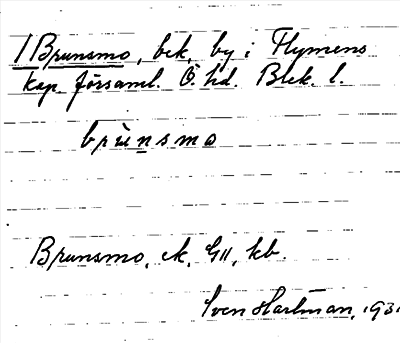 1 Brunsmo, bek. by i Flymens
kap. församl. Ö. hd. Blek. l.
brùnsmo
Brunsmo, ek, GII, kb.
Sven Hartman, 193